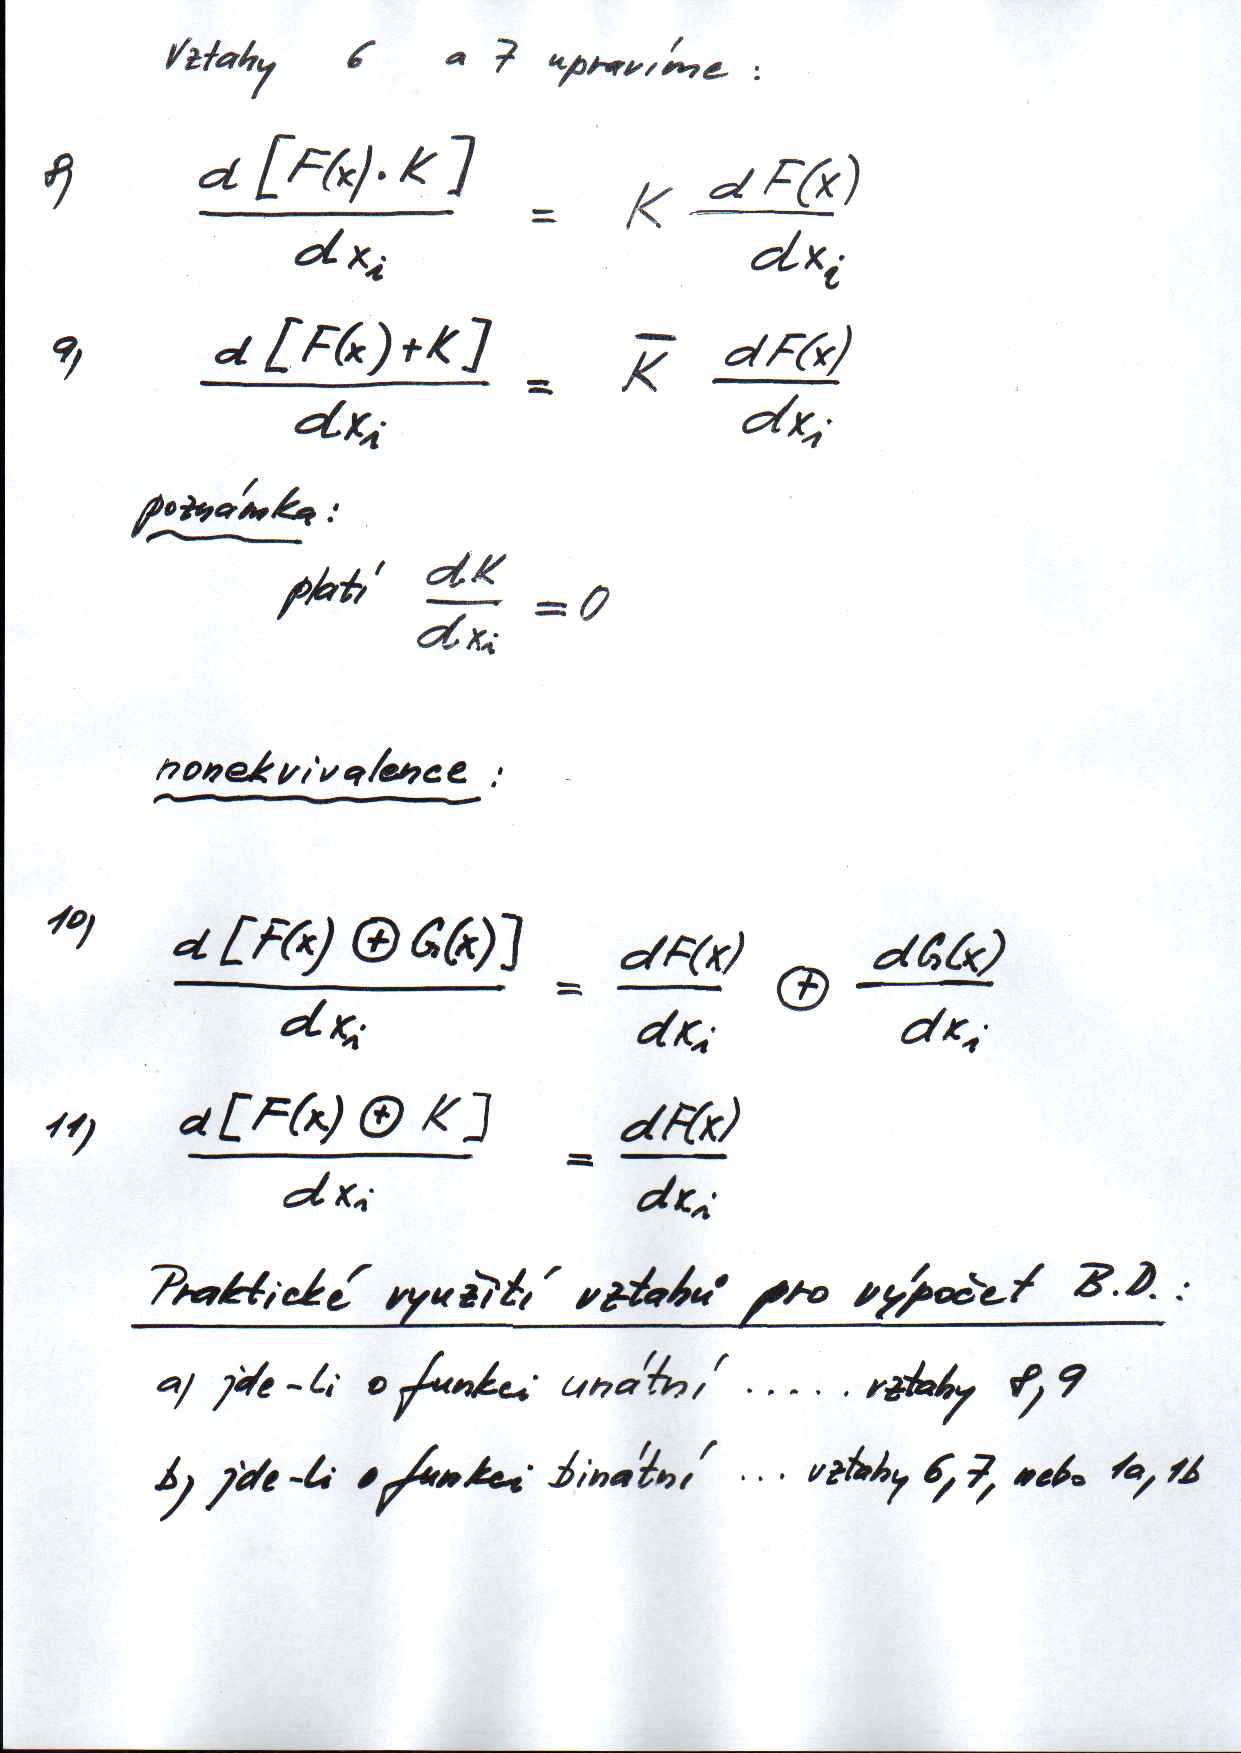 Vztahy 6 a 7 upravíme :
8) d [F(x) · K] / dxi = K dF(x) / dxi
9) d [F(x) + K] / dxi = K̅ dF(x) / dxi
poznámka :
platí dK / dxi = 0
nonekvivalence :
10) d [F(x) ⊕ G(x)] / dxi = dF(x) / dxi ⊕ dG(x) / dxi
11) d [F(x) ⊕ K] / dxi = dF(x) / dxi
Praktické využití vztahů pro výpočet B.D. :
a) jde-li o funkci unátní ..... vztahy 8, 9
b) jde-li o funkci binátní ... vztahy 6, 7, nebo 1a, 1b